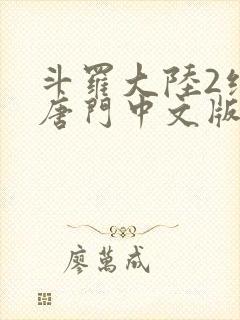 斗羅大陸2絕
唐門中文版
廖萬成